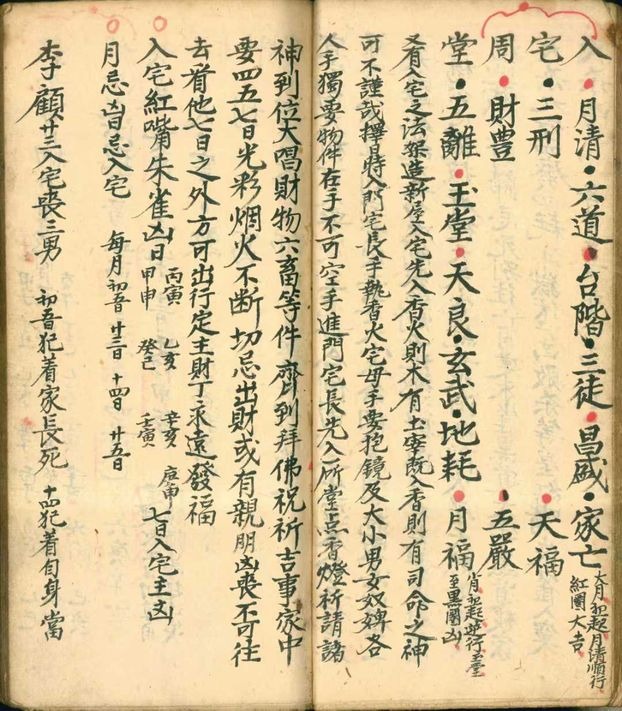 入·月清·六道·台階·三徒·昌盛·家亡
大月初起月清順行
紅圈大吉
宅·三刑·天福
周·財豐·五嚴
堂·五離·玉堂·天良·玄武·地耗·月福
初起逆行玉堂
至黑圈凶
又有入宅之法架造新屋入宅先入香火則木有主宰既入香則有司命之神
可不謹哉擇時入門宅長手執香火宅母手要抱鏡及大小男女奴婢各
人手獨要物件在手不可空手進門宅長先入所堂点香燈祈請諸
神到位大唱財物六畜等件齊到拜佛祝祈吉事家中
要四五七日光彩烟火不断切忌出財或有親朋凶喪不可往
去看他七日之外方可出行定主財丁永遠發福
入宅紅嘴朱雀凶日 丙寅 乙亥 辛亥 庚申
甲申 癸巳 壬寅 七日入宅主凶
月忌凶日忌入宅 每月初吾 廿三日 十四日 廿五日
李顧廿三入宅喪三男 初吾犯着家長死 十四犯着自身當